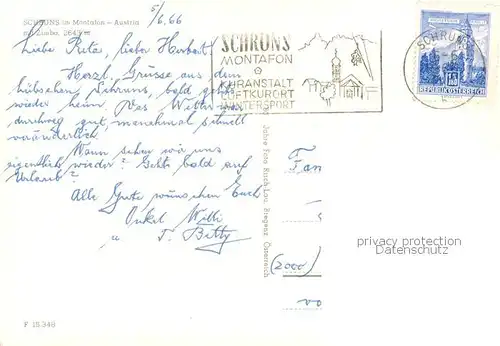 SCHRUNS im Montafon – Austria
mit Zimba, 2643 m
5/6.66
Liebe Rita, lieber Herbert
Herzl. Grüsse aus dem
hübschen Schruns, bald geht's
wieder heim. Das Wetter war
durchweg gut, manchmal schnell
veränderlich.
Wann sehen wir uns
eigentlich wieder? Geht's bald auf
Urlaub?
Alles Gute wünschen Euch
Onkel Willi
u T. Betty
SCHRUNS
MONTAFON
KURANSTALT
LUFTKURORT
WINTERSPORT
SCHRUNS
REPUBLIK ÖSTERREICH
Foto Risch-Lau, Bregenz, Österreich
Fam
(2000)
privacy protection
Datenschutz
F 15 348